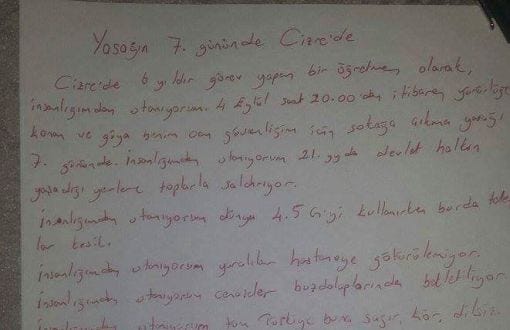 Yasağın 7. gününde Cizre'de
Cizre'de 6 yıldır görev yapan bir öğretmen olarak,
insanlığımdan utanıyorum. 4 Eylül saat 20.00'den itibaren yürürlüğe
konan ve güya benim can güvenliğim için sokağa çıkma yasağı
7. gününde. İnsanlığımdan utanıyorum 21. yy da devlet halkın
yaşadığı yerlere toplarla saldırıyor.
İnsanlığımdan utanıyorum dünya 4.5 G'yi kullanırken burda
lar kesik.
İnsanlığımdan utanıyorum yaralılar hastaneye götürülemiyor.
İnsanlığımdan utanıyorum cenazeler buzdolaplarında bekletiliyor
utanıyorum tüm Türkiye buna sağır, kör, dilsiz.